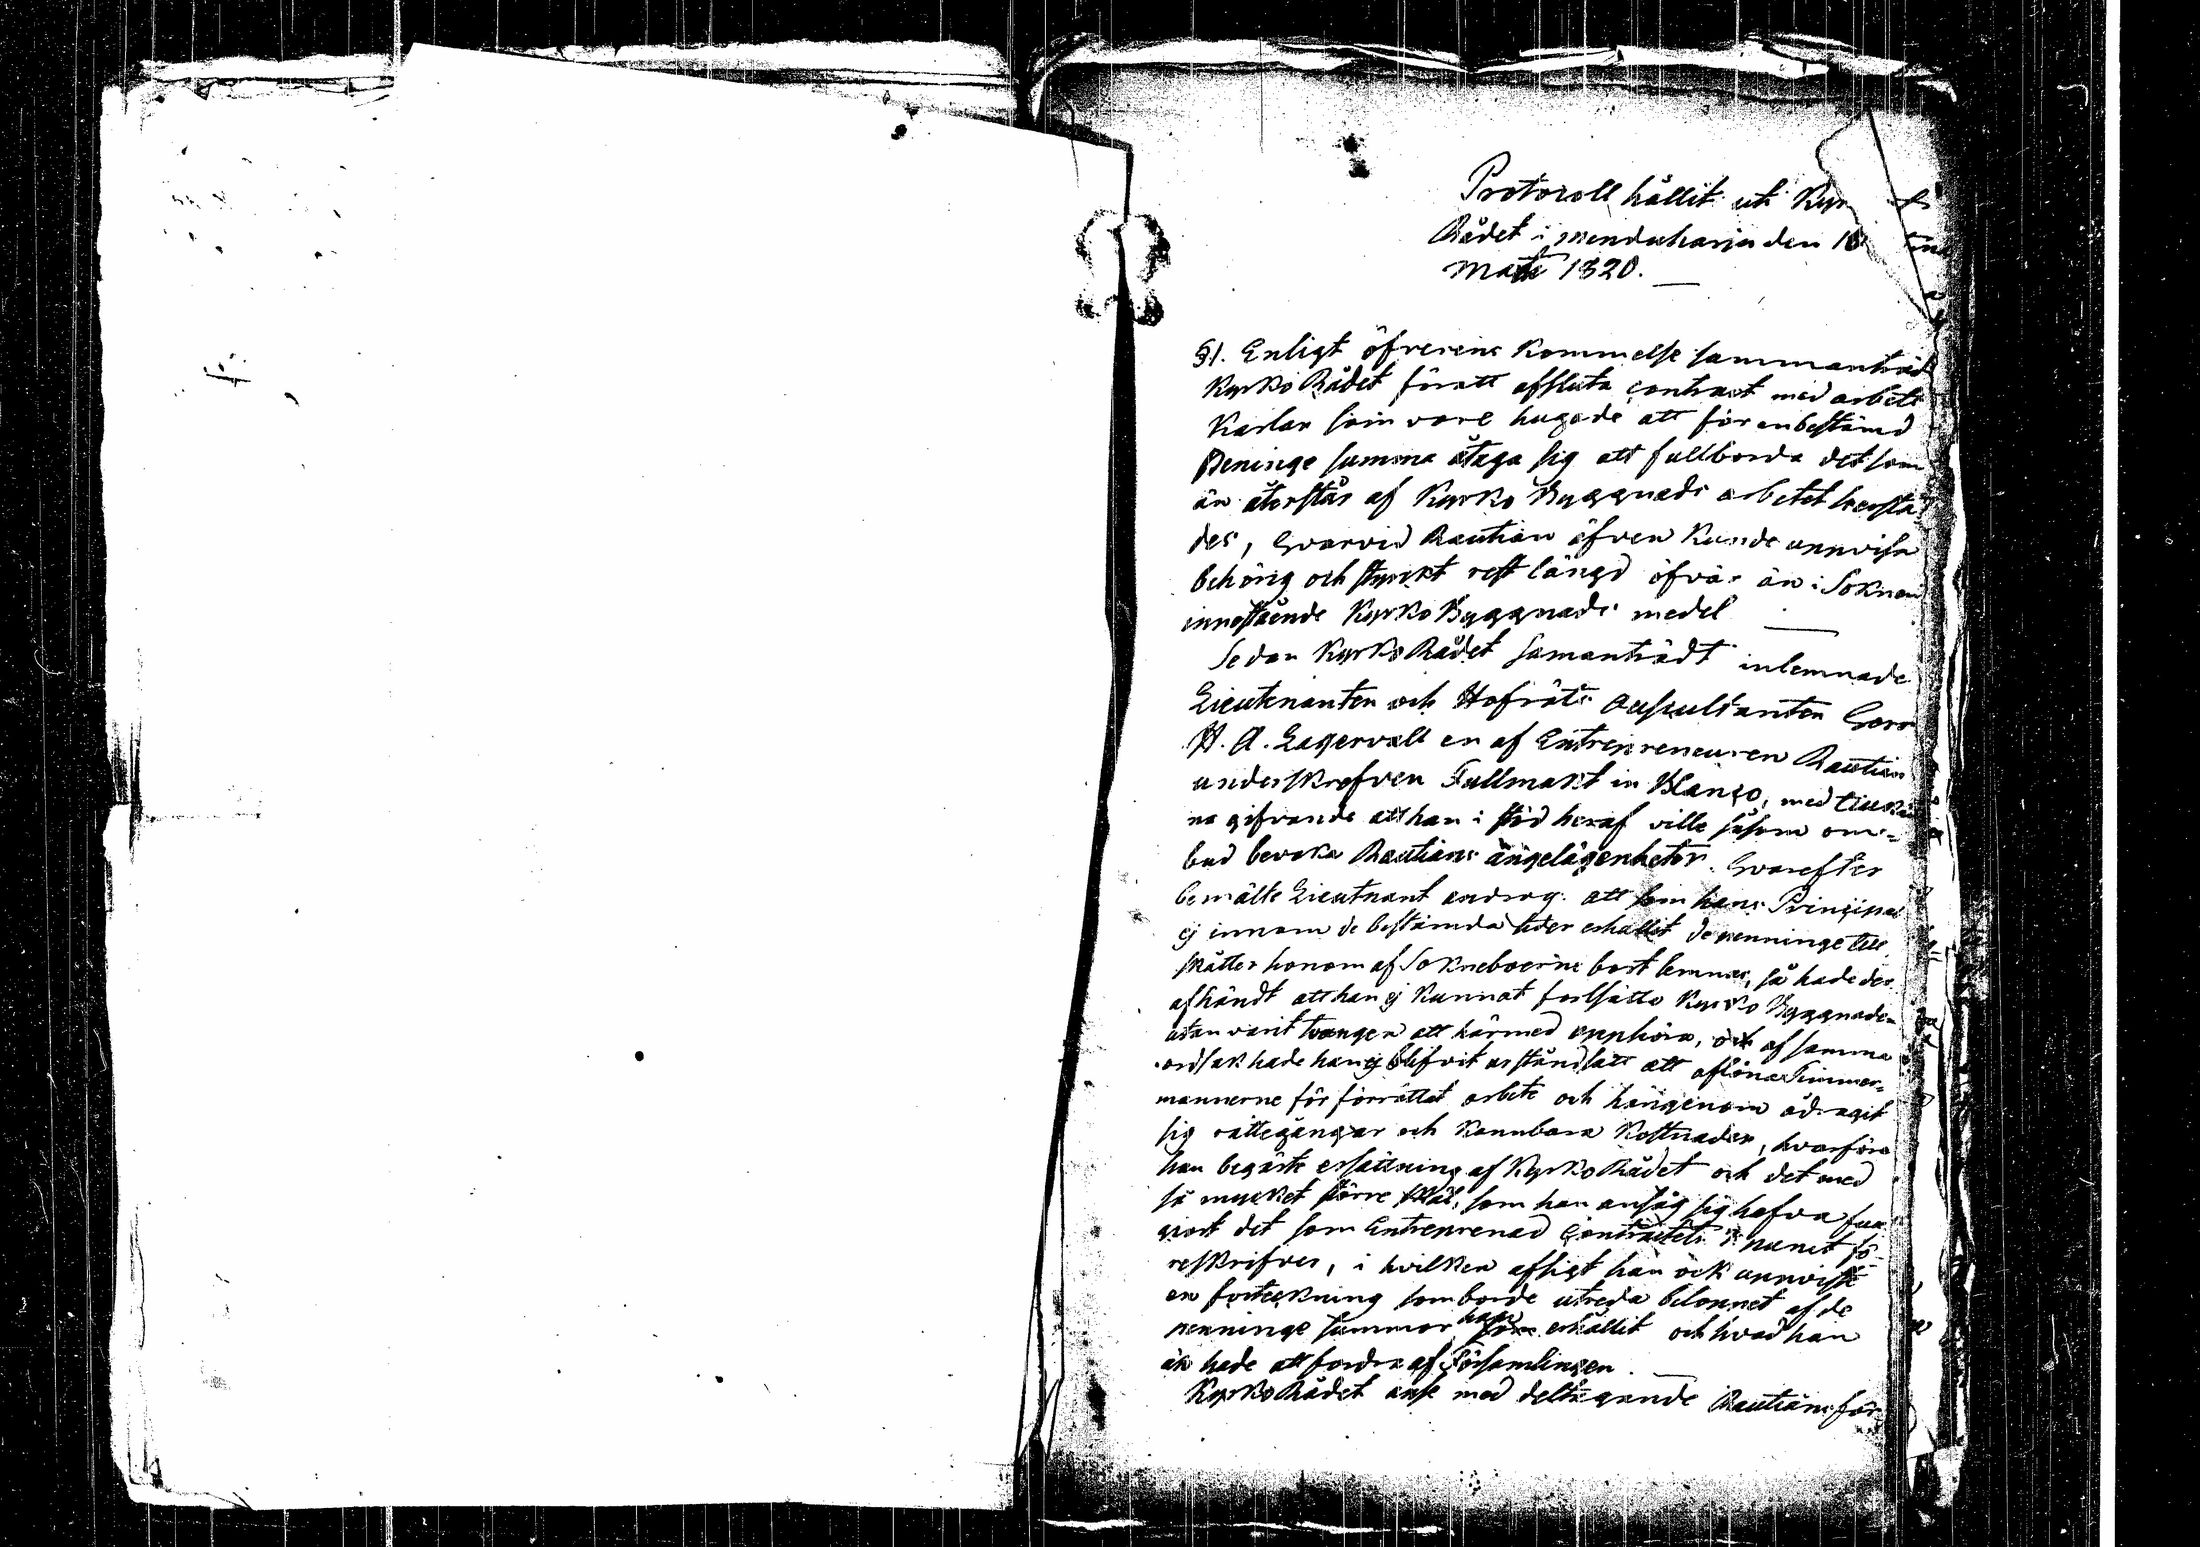 Protocoll hållit uti Kyr
Rådet i Menduharju den 18
Maii 1820.
§1. Enligt öfverens kommelse sammanträd
Kyrko Rådet föratt afsluta contract med arbets
Karlar som vore hugade att för en bestämd
Peninge summa åtaga sig att fullborda det som
än återstår af Kyrko Byggnads arbetet härstä
des, Hvarvid Rautiain äfven Kunde uppvisa
behörig och styrckt rest längd öfver än i Soknen
innestående Kyrko Byggnads medel
Sedan Kyrko Rådet samanträdt inlemnade
Lieutenanten och Hofräts Auscultanten Herr
H. A. Lagervall en af Entrepreneuren Rautiain
underskrefven Fullmakt in Blanco, med tillkän
na gifvande att han i stöd heraf ville såsom om-
bud bevaka Rautiains angelägenheter. Hvarefter
bemälte Lieutnant androg: att som hans Principal
ej innom de bestämda tider erhållit de penninge till
skätter honom af Sokneboerne bort lemnas, så hade der
af händt att han ej Kunnat fortsätta Kyrko Byggnaden
utan varit tvungen att härmed upphöra, och af samma
ordsak hade han ej blifvit iståndsatt att aflöna Timmer-
mannerne för förrättat arbete och härigenom ådragit
sig rättegångar och Kännbara Kostnader, hvarföre
han begärte ersättning af Kyrko Rådet och det med
så mycket större skäl, som han ansåg sig hafva full
giort det som Entreprenad Contractets punct fö-
reskrifver, i hvilken afsigt han ock uppviste
en förteckning som borde utreda beloppet af de
penninge summor han erhållit och hvad han
än hade att fordra af Församlingen.
Kyrko Rådet anse med deltagande Rautiains för